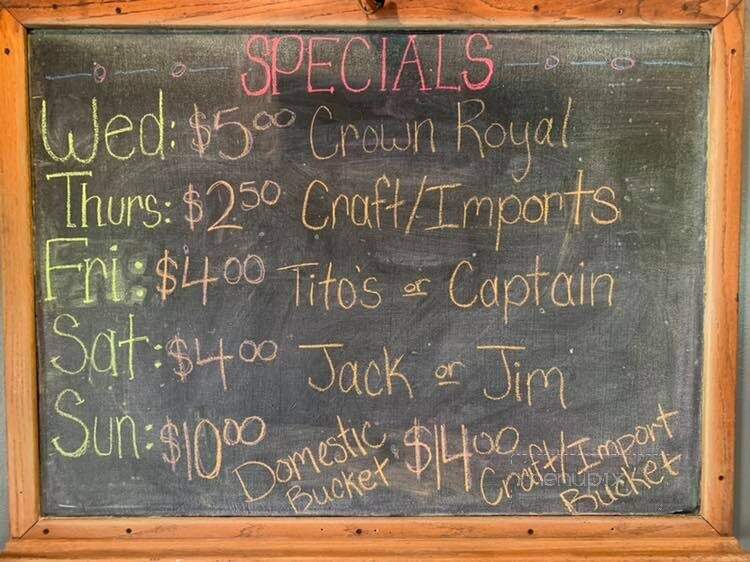 SPECIALS
Wed: $5.00 Crown Royal
Thurs: $2.50 Craft/Imports
Fri: $4.00 Tito's or Captain
Sat: $4.00 Jack or Jim
Sun: $10.00 Domestic Bucket $14.00 Craft/Import Bucket
menupix